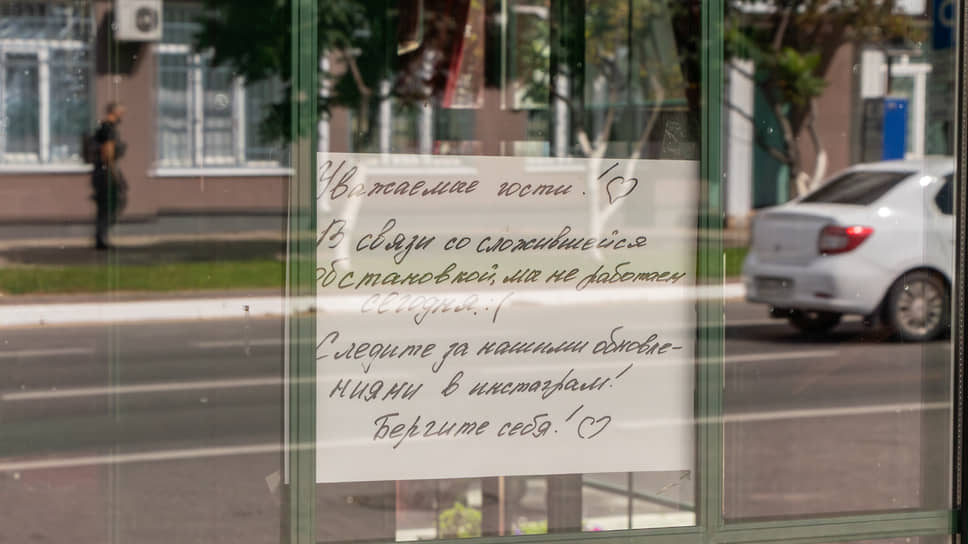 Уважаемые гости! ♡
В связи со сложившейся
обстановкой, мы не работаем
сегодня. :(
Следите за нашими обновле-
ниями в инстаграм!
Бергите себя! ♡